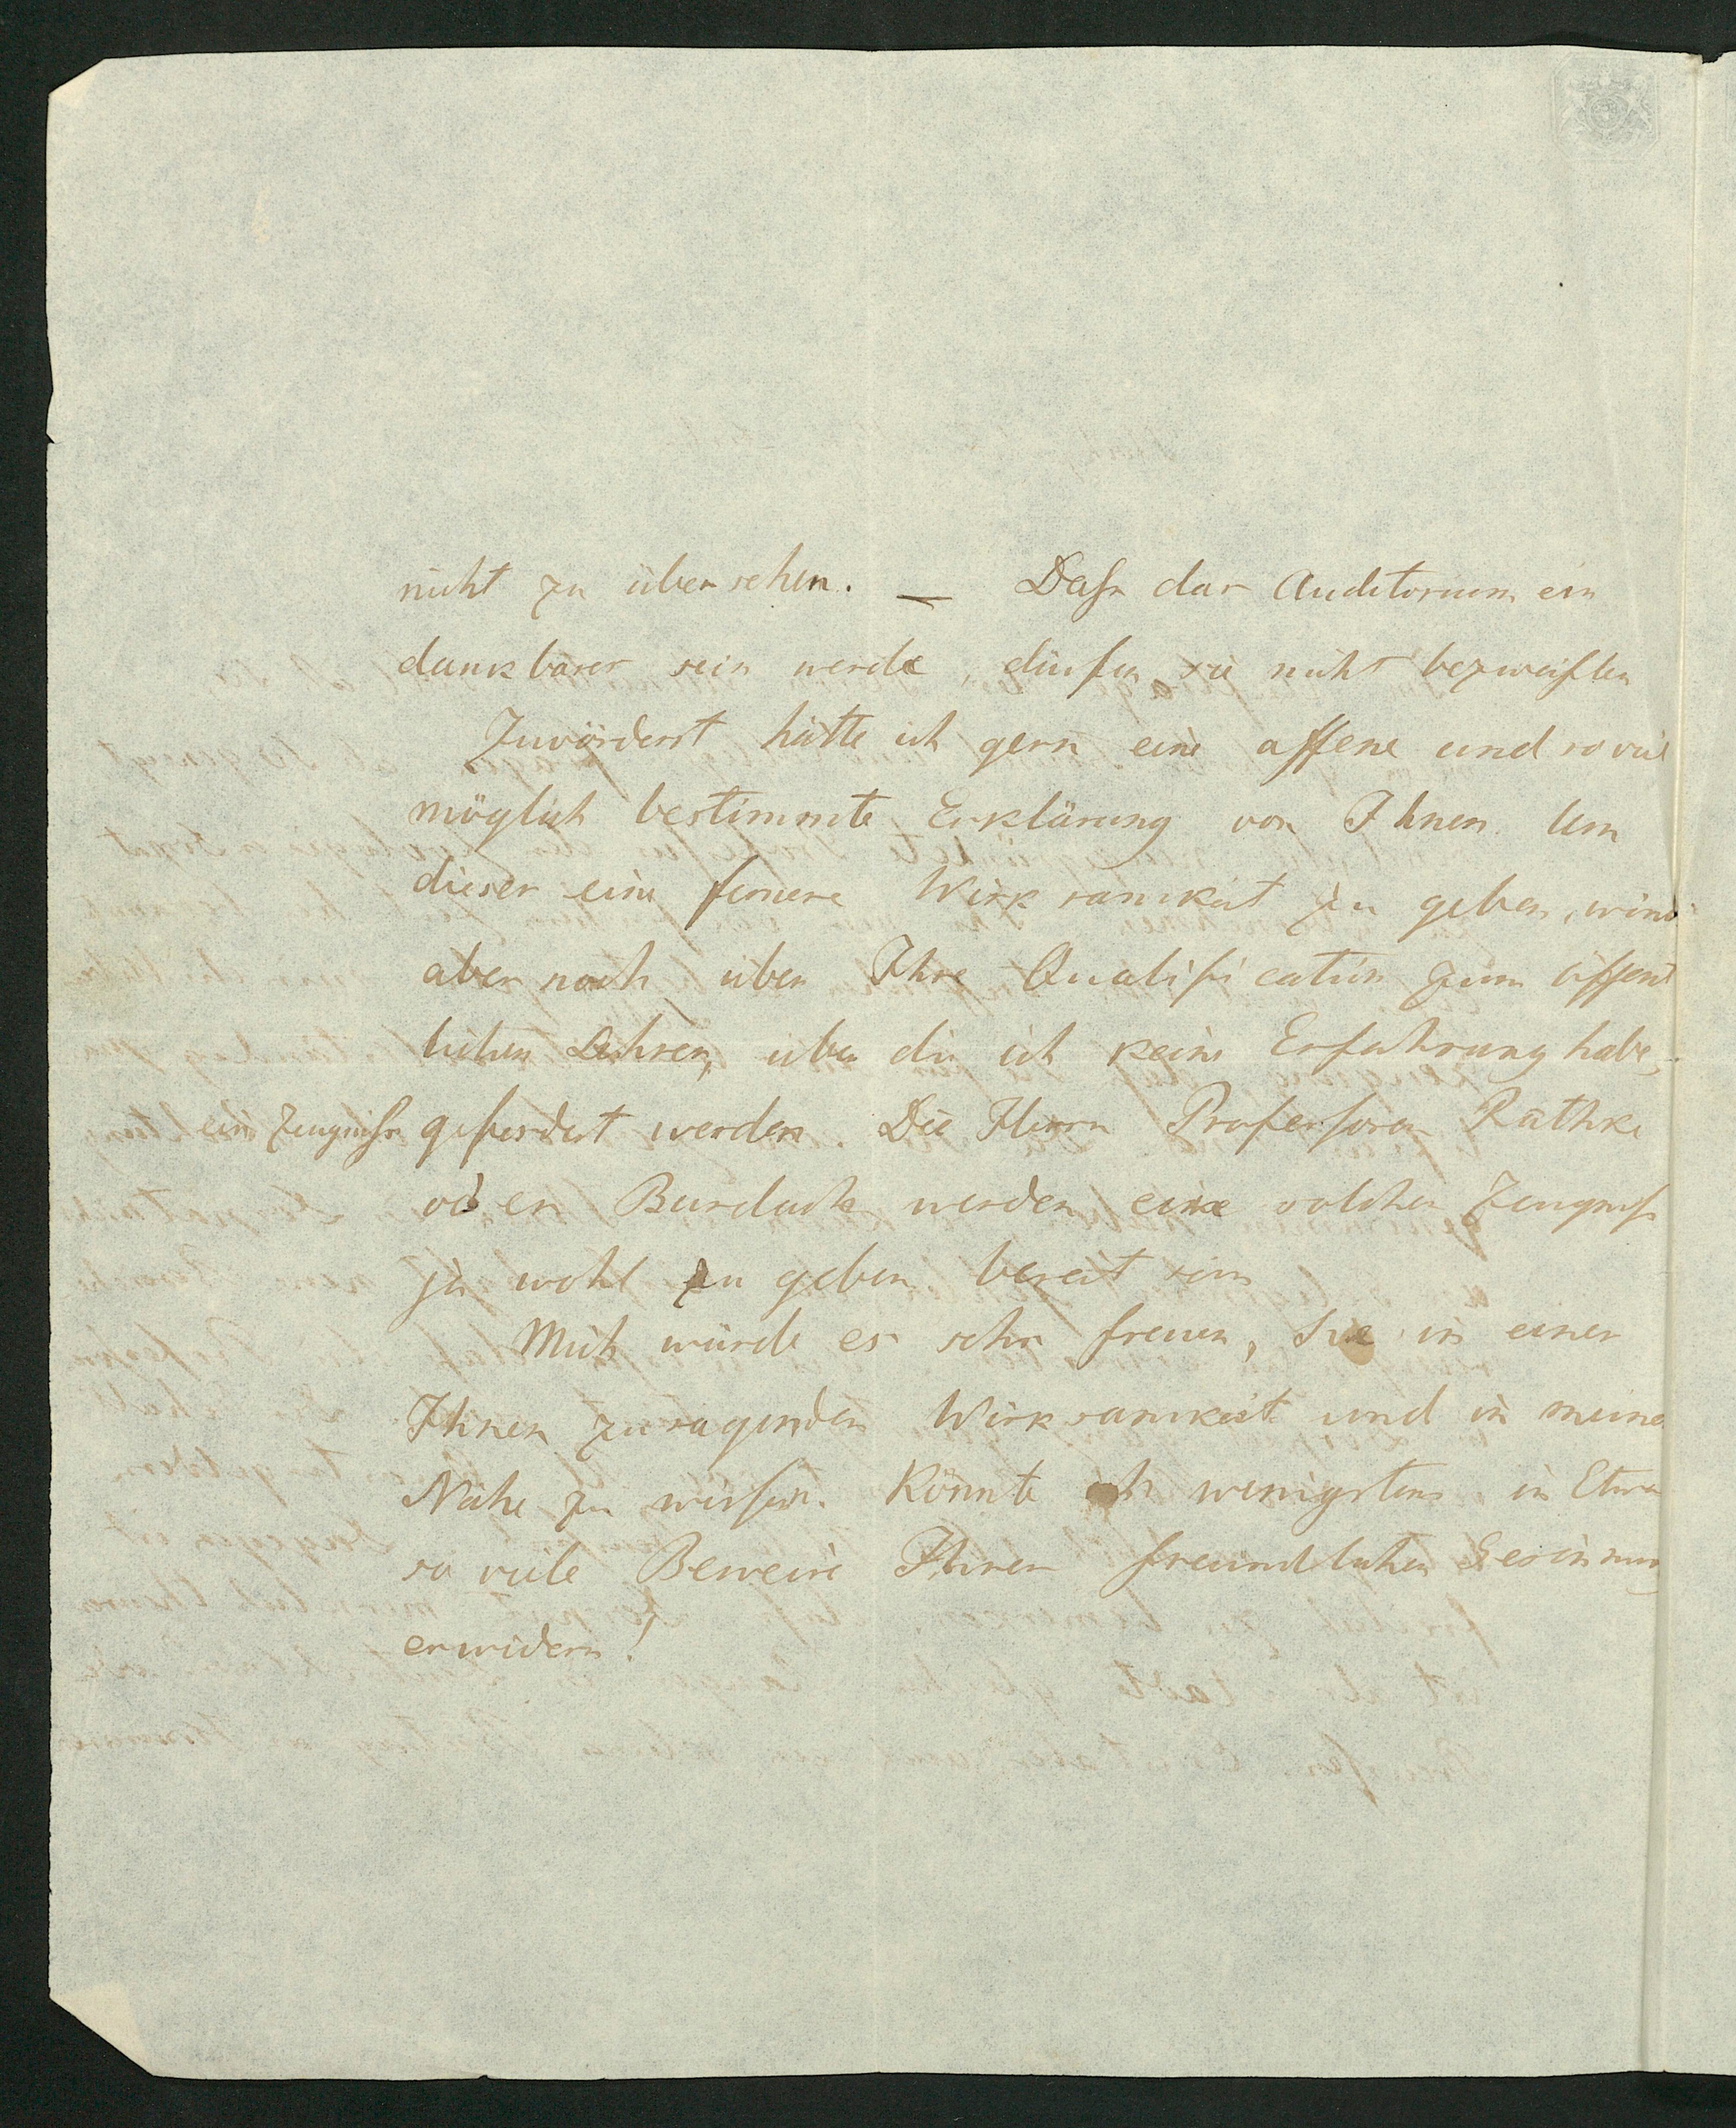 nicht zu übersehen. — Dass das Auditorium ein
dankbares sein werde, dürfen sie nicht bezweiflen
Zuvörderst hätte ich gern eine offene und so viel
möglich bestimmte Erklärung von Ihnen. Um
dieser eine fernere Wirksamkeit zu geben, wird
aber noch über Ihre Qualification zum öffent
lichen Lehrer, über die ich keine Erfahrung habe,
ein Zeugniss gefordert werden. Die Herrn Professoren Rathke
oder Burdach werden eine solches Zeugniss
ja wohl zu geben bereit sein
Mich würde es sehr freuen, Sie in einer
Ihnen zusagenden Wirksamkeit und in meiner
Nähe zu wissen. Könnte ich wenigstens in Etwas
so viele Beweise Ihrer freundlichen Gesinnung
erwidern!